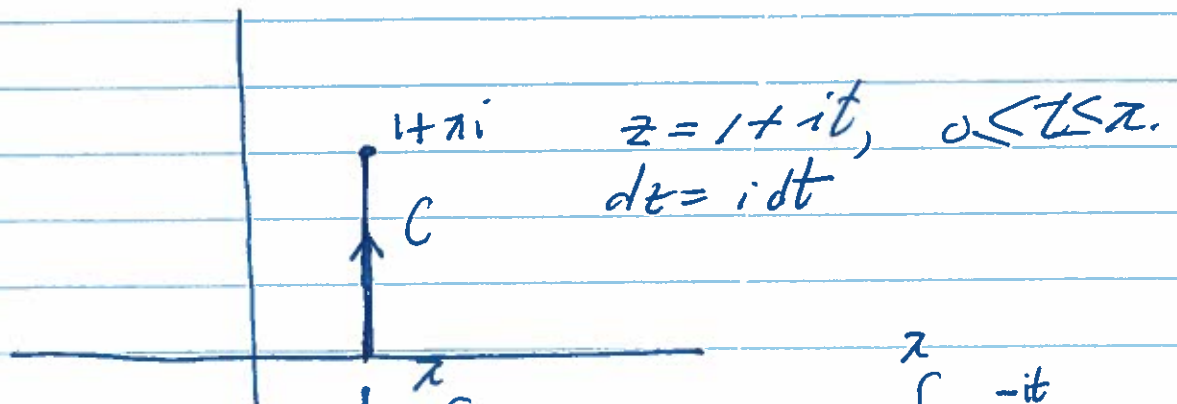 1+πi z = 1+it, 0≤t≤π.
C dz = i dt
π π
1 ∫ ∫ -it